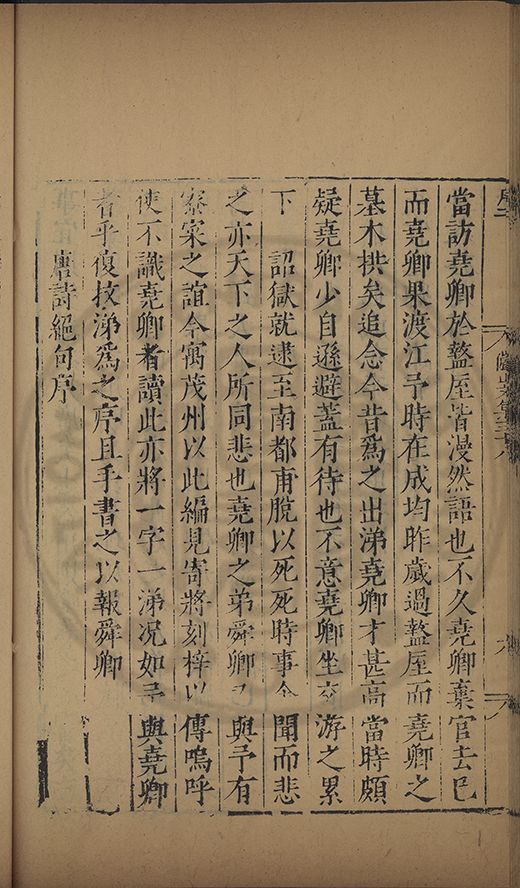 當訪堯卿於盩厔皆漫然語也不久堯卿棄官去已
而堯卿果渡江予時在成均昨歲過盩厔而堯卿之
墓木拱矣追念今昔爲之出涕堯卿才甚高當時頗
疑堯卿少自遜避蓋有待也不意堯卿坐交游之累
下 詔獄就逮至南都甫脫以死死時事令聞而悲
之亦天下之人所同悲也堯卿之弟舜卿已與予有
寮寀之誼今寓茂州以此編見寄將刻梓以傳嗚呼
使不識堯卿者讀此亦將一字一涕况如予與堯卿
者乎復抆涕爲之序且手書之以報舜卿
唐詩絕句序